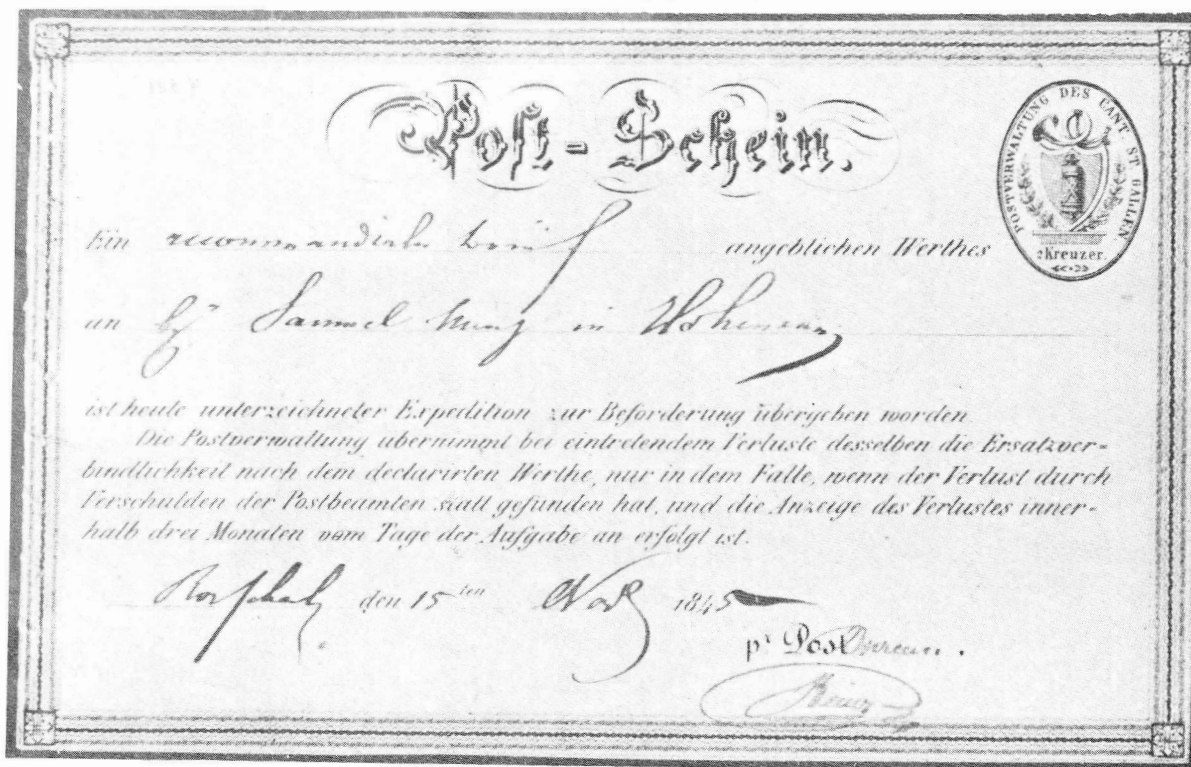 Post-Schein.
POSTVERWALTUNG DES CANT ST GALLEN.
2 Kreuzer.
Ein recommandirter Brief angeblichen Werthes
an Samuel in
ist heute unterzeichneter Expedition zur Beförderung übergeben worden.
Die Postverwaltung übernimmt bei eintretendem Verluste desselben die Ersatzver-
bindlichkeit nach dem declarirten Werthe, nur in dem Falle, wenn der Verlust durch
Verschulden der Postbeamten statt gefunden hat, und die Anzeige des Verlustes inner-
halb drei Monaten vom Tage der Aufgabe an erfolgt ist.
Rorschach den 15ten Nov 1845
pr Postbureau.